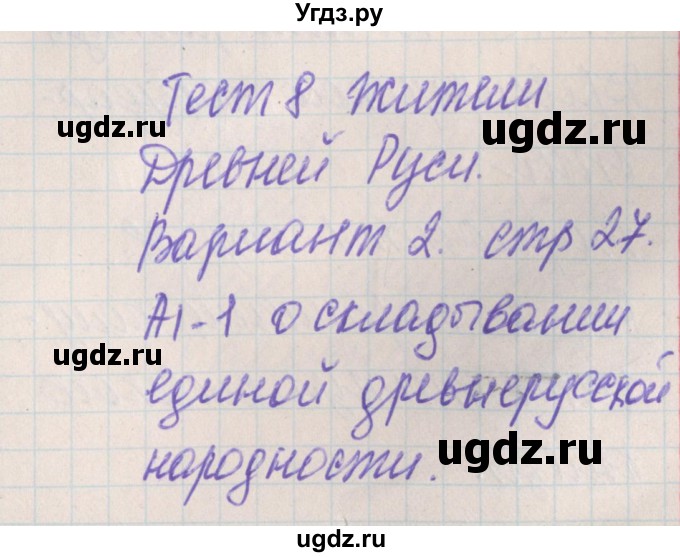 Угдз.ру
Тест 8 Жители
ugdz.ru ugdz.ru
Древней Руси.
Вариант 2. стр 27.
А1-1 о складывании
ugdz.ru ugdz.ru
единой древнерусской
ugdz.ru
народности.
ugdz.ru